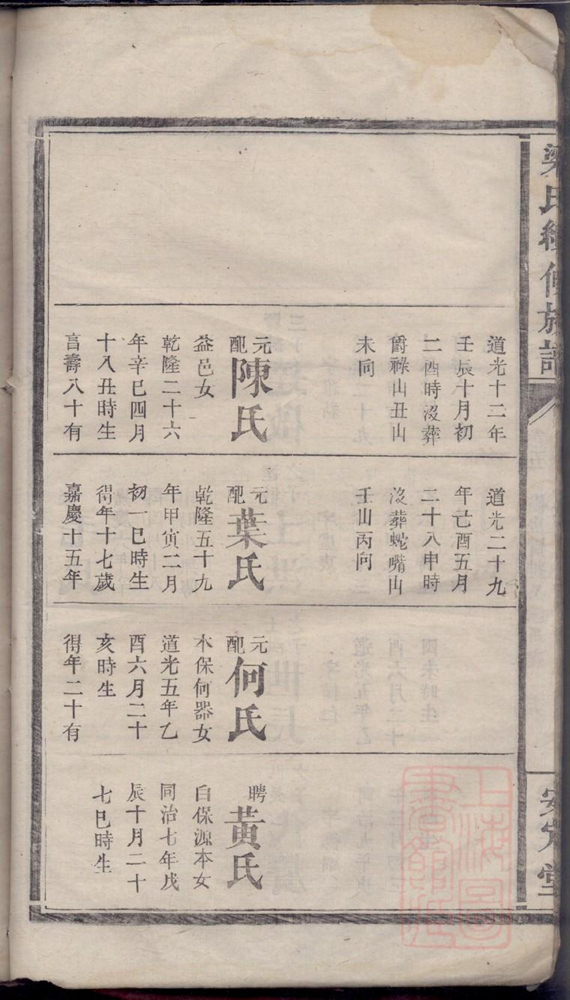 梁氏續修族譜
安定堂
道光十二年
壬辰十月初
二酉時沒葬
爵祿山丑山
未向
元配陳氏
益邑女
乾隆二十六
年辛巳四月
十八丑時生
言壽八十有
道光二十九
年亡酉五月
二十八申時
沒葬蛇嘴山
壬山丙向
元配葉氏
乾隆五十九
年甲寅二月
初一巳時生
得年十七歲
嘉慶十五年
元配何氏
本保何器女
道光五年乙
酉六月二十
亥時生
得年二十有
聘黃氏
自保源本女
同治七年戊
辰十月二十
七巳時生
上海圖書館藏